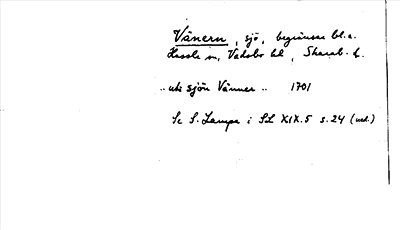 Vänern, sjö, begränsar bl.a.
Hassle sn, Vadsbo hd, Skarab. l.
..uti sjön Vänner.. 1701
Se S. Lampa i SL XIX.5 s.24 (not.)